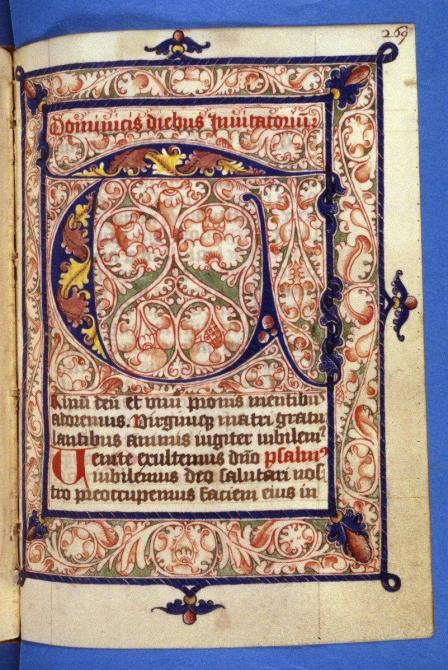 269
Dominicis diebus Inuitatoriū.
Trinū deū et vnū pronis mentibus
adoremus. Virginiqꝫ matri gratu
lantibus animis iugiter iubilem⁹
Uenite exultemus dn̄o psalm⁹
iubilemus deo salutari nos
tro preoccupemus faciem eius in